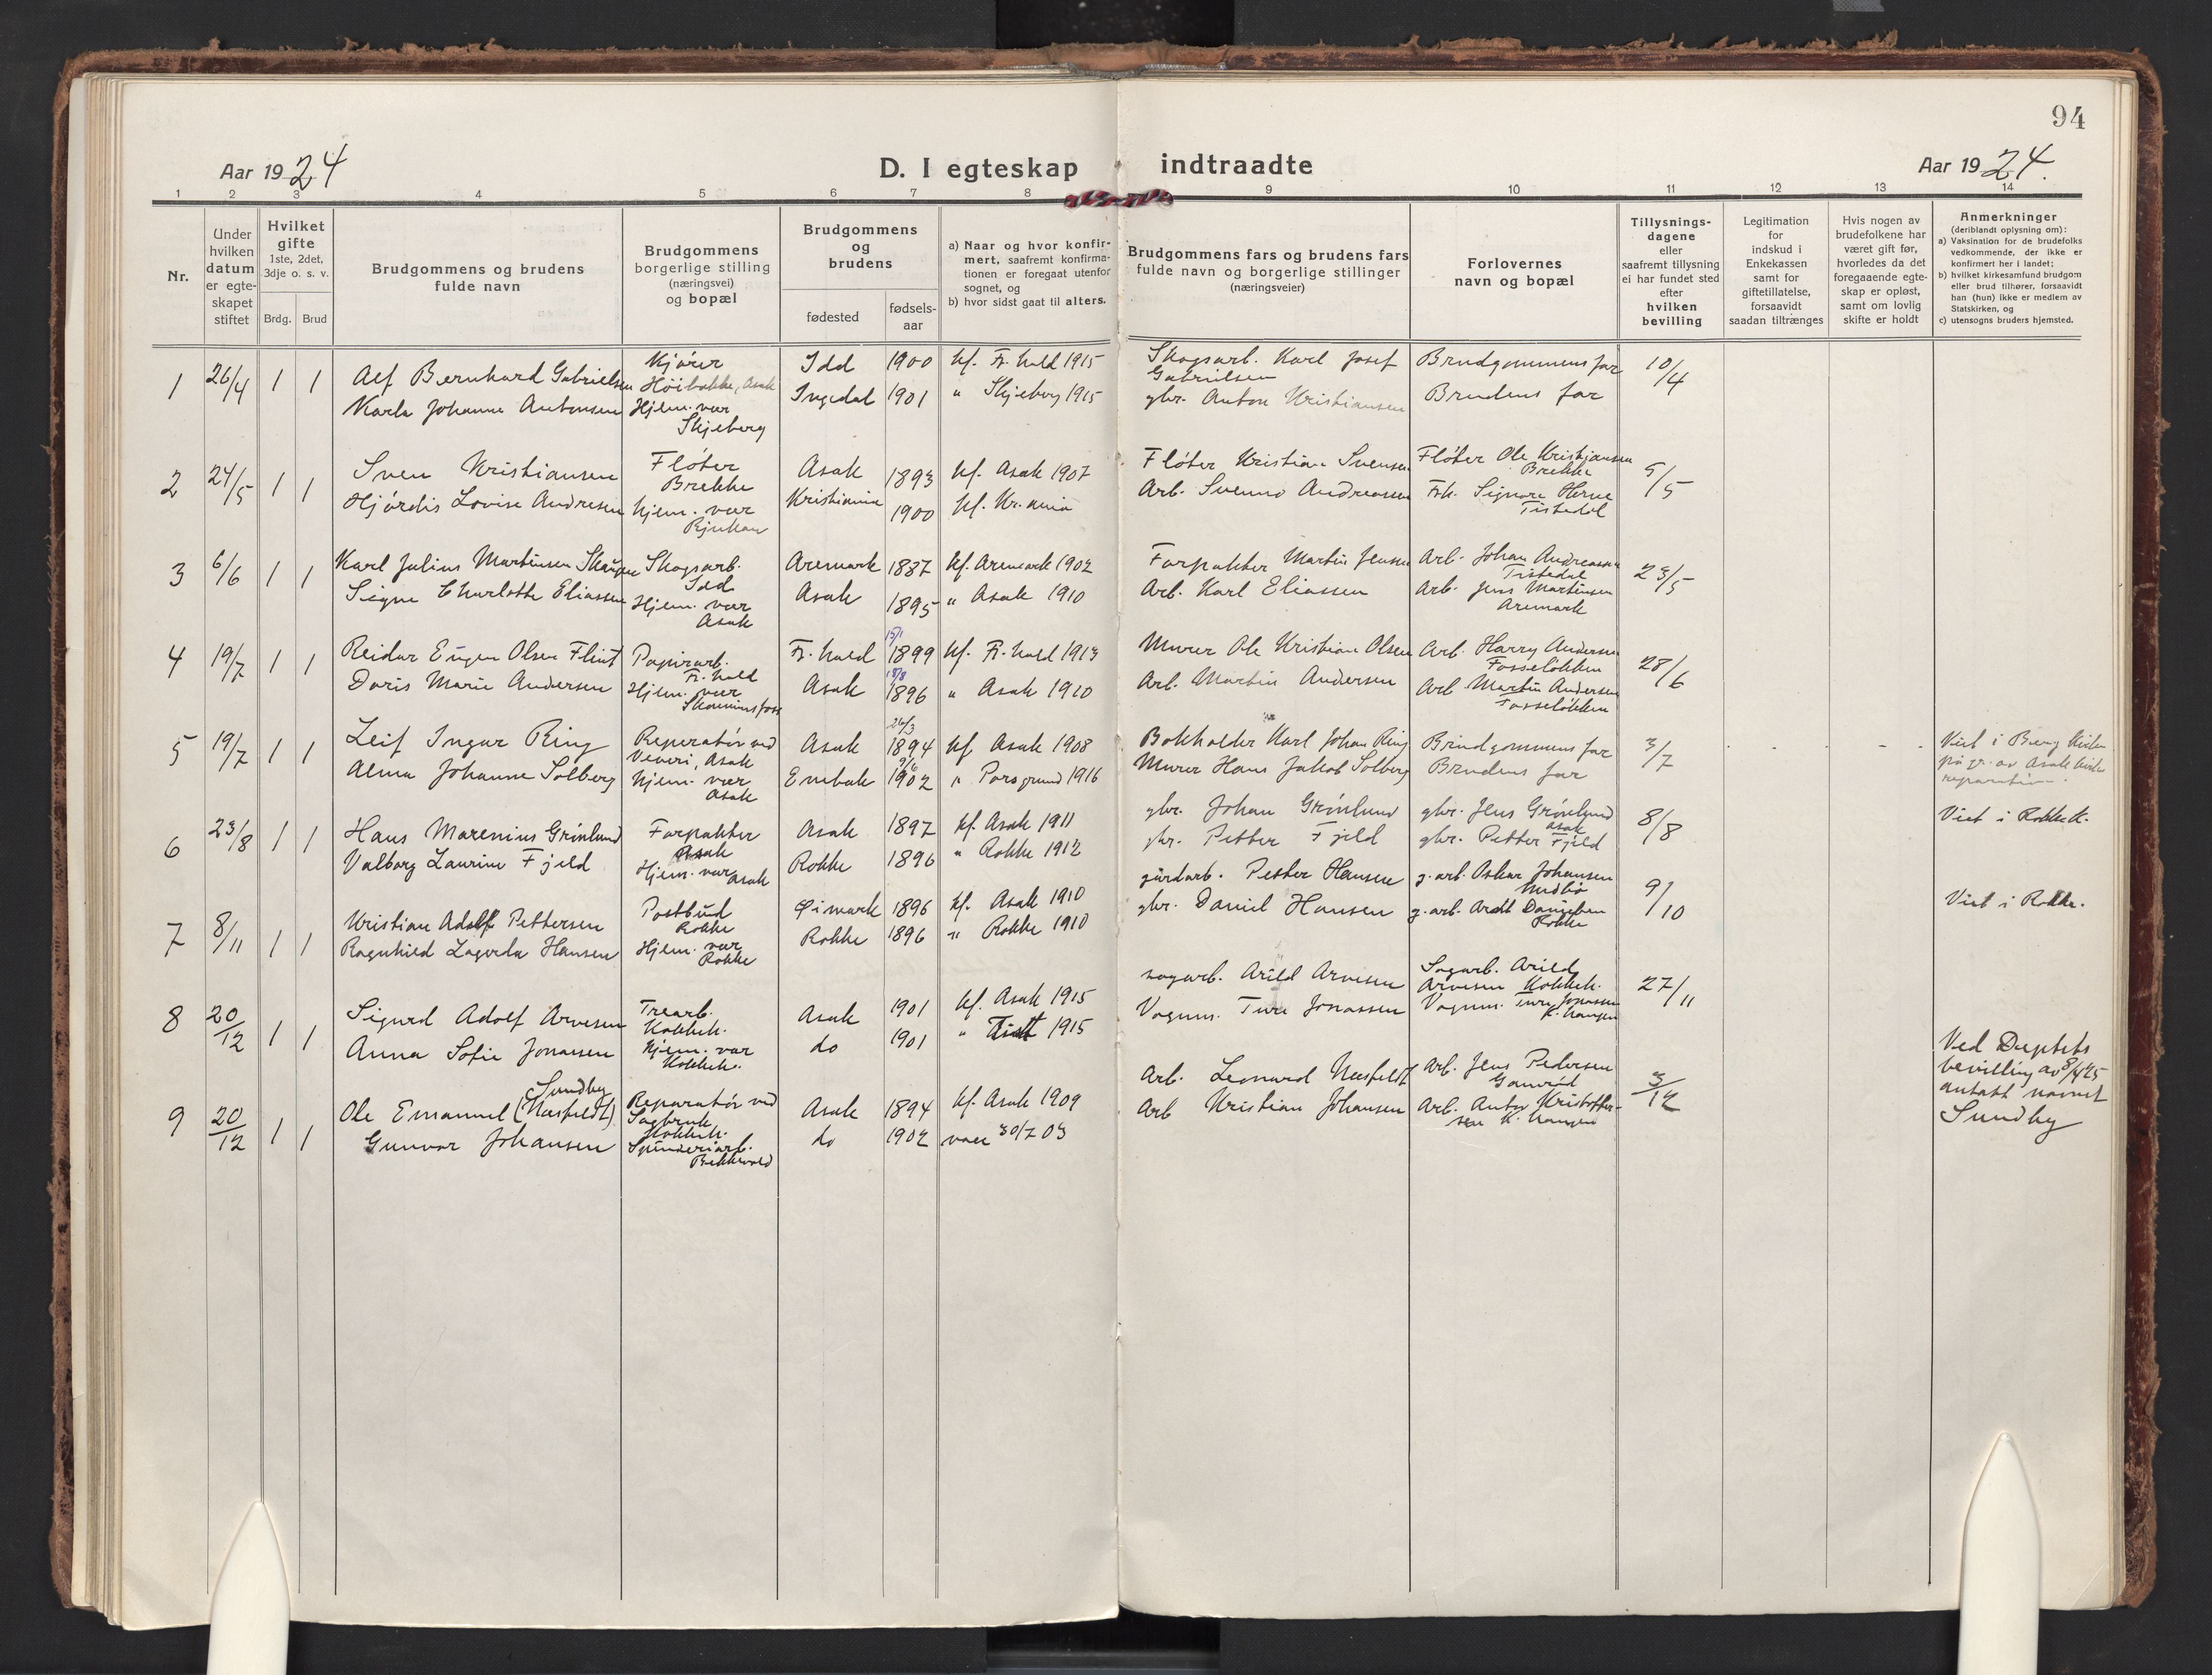 94
Aar 1924
D. I egteskap indtraadte
Aar 1924.
1 2 3 4 5 6 7 8 9 10 11 12 13 14
Nr.
Under
hvilken
datum
er egte-
skapet
stiftet
Hvilket
gifte
1ste, 2det,
3dje o. s. v.
Brdg. Brud
Brudgommens og brudens
fulde navn
Brudgommens
borgerlige stilling
(næringsvei)
og bopæl
Brudgommens
og
brudens
fødested
fødsels-
aar
a) Naar og hvor konfir-
mert, saafremt konfirma-
tionen er foregaat utenfor
sognet, og
b) hvor sidst gaat til alters.
Brudgommens fars og brudens fars
fulde navn og borgerlige stillinger
(næringsveier)
Forlovernes
navn og bopæl
Tillysnings-
dagene
eller
saafremt tillysning
ei har fundet sted
efter
hvilken
bevilling
Legitimation
for
indskud i
Enkekassen
samt for
giftetillatelse,
forsaavidt
saadan tiltrænges
Hvis nogen av
brudefolkene har
været gift før,
hvorledes da det
foregaaende egte-
skap er opløst,
samt om lovlig
skifte er holdt
Anmerkninger
(deriblandt oplysning om):
a) Vaksination for de brudefolks
vedkommende, der ikke er
konfirmert her i landet;
b) hvilket kirkesamfund brudgom
eller brud tilhører, forsaavidt
han (hun) ikke er medlem av
Statskirken, og
c) utensogns bruders hjemsted.
1 26/4 1 1
Alf Bernhard Gabrielsen
Karla Johanne Antonsen
Kjører
Høibakke, Asak
Hjem. vær
Skjeberg
Idd 1900 kf. Fr.hald 1915
Ingedal 1901 " Skjeberg 1915
Skogsarb. Karl Josef
Gabrielsen
gbr. Anton Kristiansen
Brudgommens far
Brudens far
10/4
2 24/5 1 1
Sven Kristiansen
Hjørdis Lovise Andresen
Fløter
Brekke
hjem. vær
Rjukan
Asak 1893 kf. Asak 1907
Kristiania 1900 kf. Kr.ania
Fløter Kristian Svensen
Arb. Svenno Andreassen
Fløter Ole Kristiansen
Brekke
Frk. Signora Herne
Tistedal
9/5
3 6/6 1 1
Karl Julius Martinsen Skaugen
Signe Charlotte Eliassen
Skogsarb.
Idd
Hjem. vær
Asak
Aremark 1887 kf. Aremark 1902
Asak 1895 " Asak 1910
Forpakter Martin Jensen
Arb. Karl Eliassen
Arb. Johan Andreassen
Tistedal
Arb. Jens Martinsen
Aremark
23/5
4 19/7 1 1
Reidar Eugen Olsen Flint
Doris Marie Andersen
Papirarb.
Fr.hald
Hjem. vær
Skonningsfoss
Fr.hald 15/1 1899 kf. Fr.hald 1913
Asak 1896 " Asak 1910
Murer Ole Kristian Olsen
Arb. Martin Andersen
Arb. Harry Andersen
Fosseløkken
Arb Martin Andersen
Fosseløkken
28/6
5 19/7 1 1
Leif Ingar Ring
Alma Johanne Solberg
Reperatør ved
Veveri, Asak
hjem. vær
Asak
Asak 26/3 1894 kf. Asak 1908
Enebak 1902 " Porsgrund 1916
Bokholder Karl Johan Ring
Murer Hans Jakob Solberg
Brudgommens far
Brudens far
3/7
Viet i Berg kirke
på gr. av Asak kirkes
reparation.
6 23/8 1 1
Hans Marenius Grønlund
Valborg Laurine Fjeld
Forpakter
Asak
Hjem. vær Asak
Asak 1897 kf. Asak 1911
Rokke 1896 " Rokke 1912
gbr. Johan Grønlund
gbr. Petter Fjeld
gbr. Jens Grønlund
Asak
gbr. Petter Fjeld
8/8
Viet i Rokke k.
7 8/11 1 1
Kristian Adolf Pettersen
Ragnhild Lagerda Hansen
Postbud
Rokke
Hjem. vær
Rokke
Øimark 1896 kf. Asak 1910
Rokke 1896 " Rokke 1910
gårdarb. Petter Hansen
gbr. Daniel Hansen
g.arb. Oskar Johansen
g.arb. Arndt Danielsen
Rokke
9/10
Viet i Rokke.
8 20/12 1 1
Sigurd Adolf Arvesen
Anna Sofie Jonassen
Trearb.
Kokkeh.
hjem. vær
Kokkeh.
Asak 1901 kf. Asak 1915
do 1901 " Tist 1915
sagarb. Arild Arvesen
Vognm. Ture Jonassen
Sagarb. Arild
Arvesen Kokkeh.
Vognm. Ture Jonassen
K. haugen
27/11
9 20/12 1 1
Sundby
Ole Emanuel (Næsfeldt)
Gunvor Johansen
Reparatør ved
Sagbruk
Kokkeh.
Spinneriarb.
Bekkevold
Asak 1894 kf. Asak 1909
do 1902 vacc 30/7 03
Arb. Leonard Næsfeldt
Arb Kristian Johansen
Arb. Jens Pedersen
Arb. Anton Kristoffer-
sen K. haugen
3/12
Ved Deptets
bevilling av 8/4 25
antatt navnet
Sundby